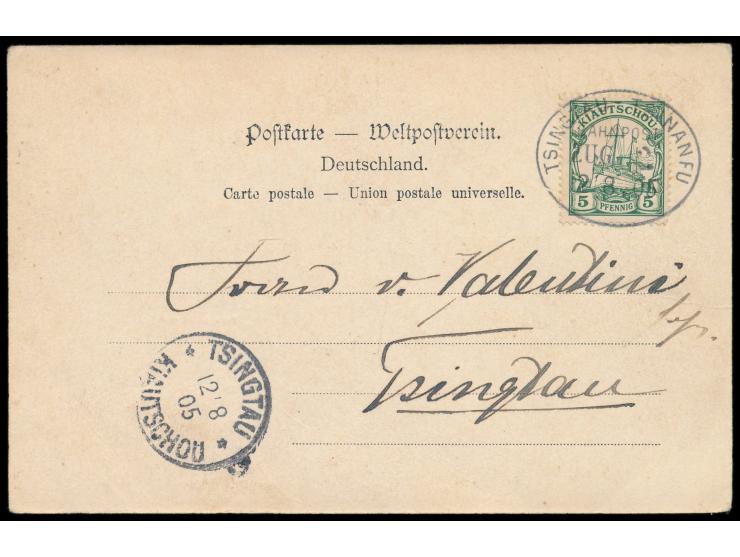 Postkarte — Weltpostverein.
Deutschland.
Carte postale — Union postale universelle.
KIAUTSCHOU
5 PFENNIG 5
TSINGTAU TSINANFU
BAHNPOST
ZUG 2
12 8 05
v. Valentini
Tsingtau
TSINGTAU
12/8
05
* KIAUTSCHOU *